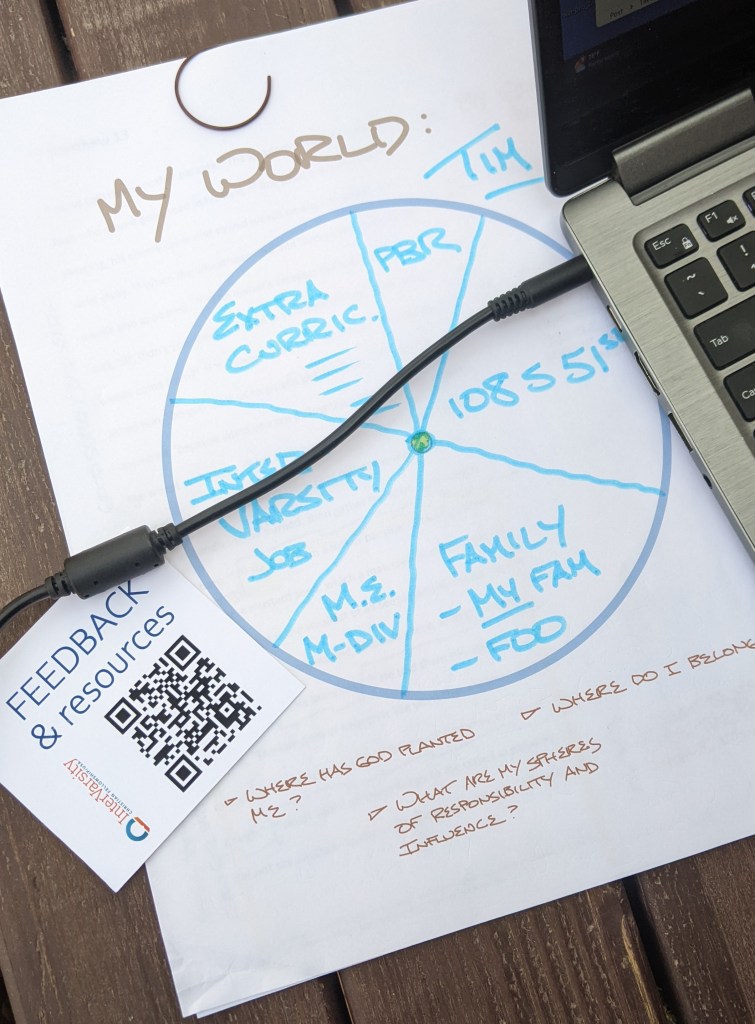 MY WORLD:
TIM
PBR
EXTRA
CURRIC.
108 S 51ST
INTER
VARSITY
JOB
M.E.
M-DIV
FAMILY
- MY FAM
- FOO
WHERE DO I BELONG
WHERE HAS GOD PLANTED
ME?
WHAT ARE MY SPHERES
OF RESPONSIBILITY AND
INFLUENCE?
FEEDBACK
& resources
InterVarsity
Esc
F1
~
!
Tab